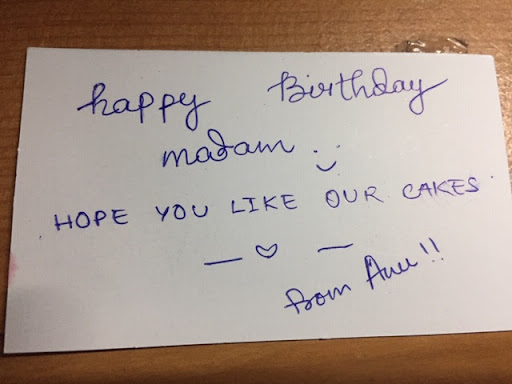 happy Birthday
madam
HOPE YOU LIKE OUR CAKES
from Anu!!